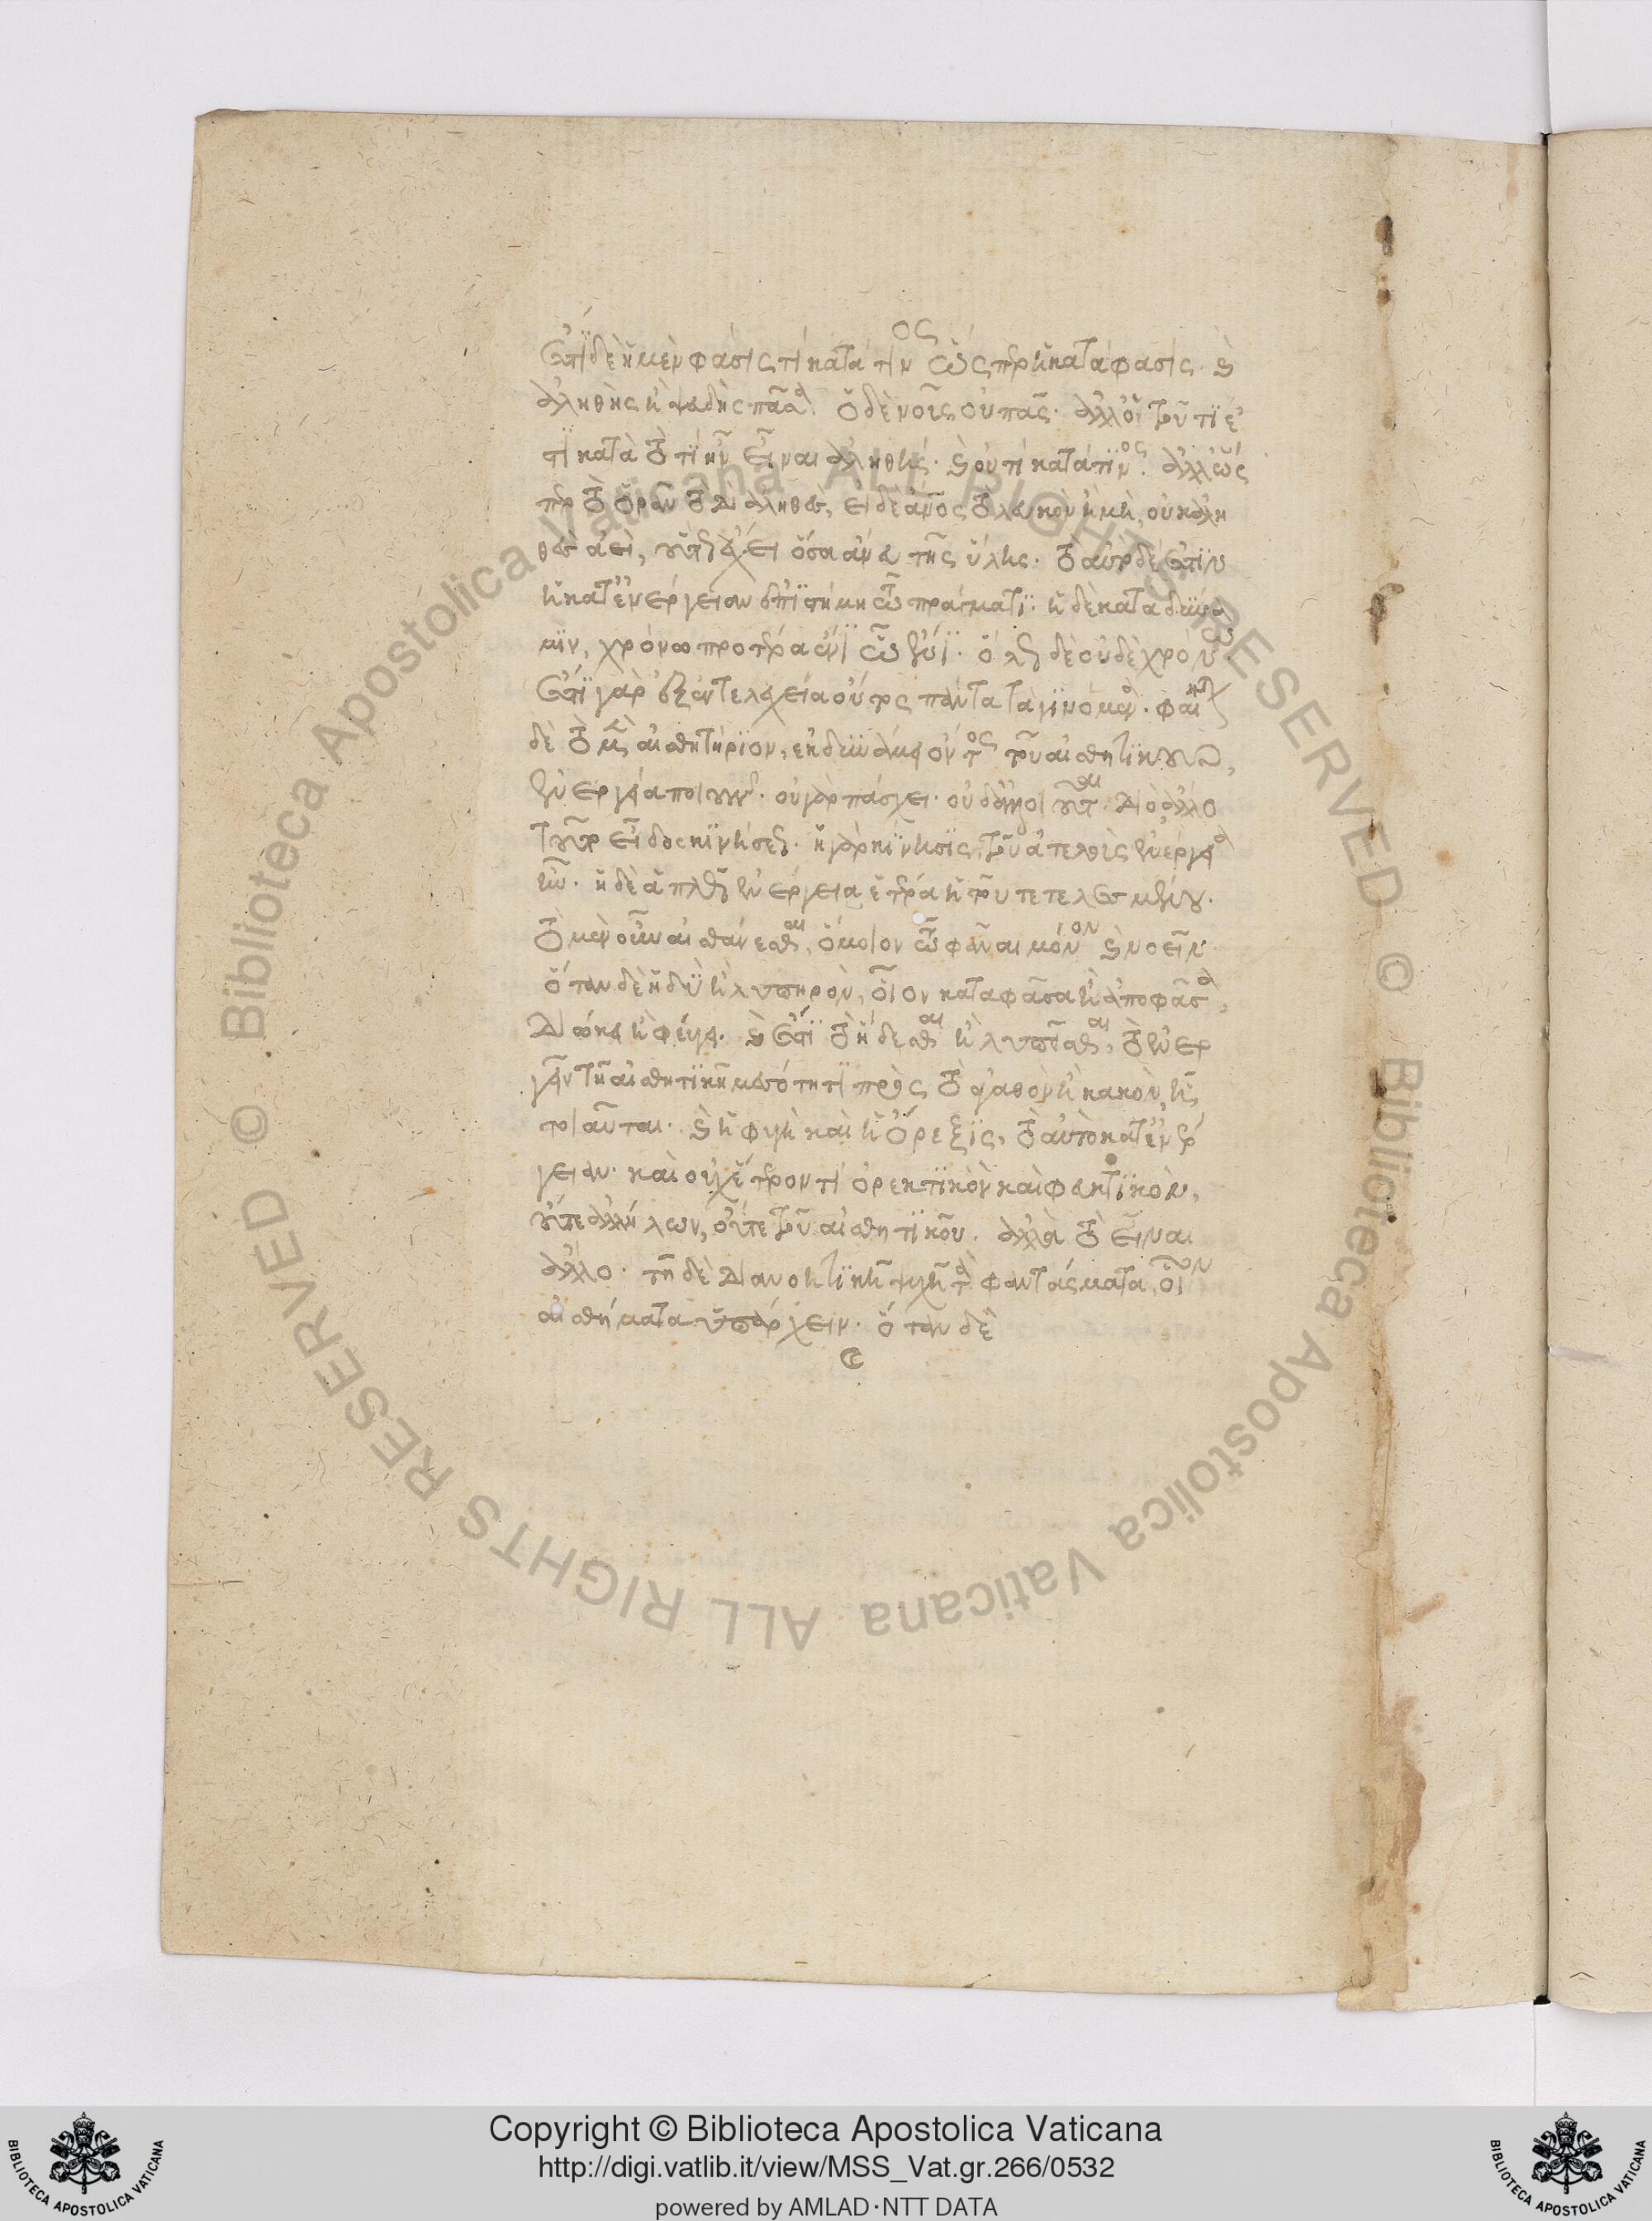 ἔστι δὲ ἡ μὲν φάσις τὶ κατά τινος ὥσπερ ἡ κατάφασις· καὶ
ἀληθὴς ἢ ψευδὴς πᾶσα. ὁ δὲ νοῦς οὐ πᾶς· ἀλλ' ὁ τοῦ τί ἐ
στι κατὰ τὸ τί ἦν εἶναι ἀληθής· καὶ οὐ τὶ κατά τινος. ἀλλ' ὥς
περ τὸ ὁρᾶν τοῦ ἰδίου ἀληθές, εἰ δὲ ἄνθρωπος τὸ λευκὸν ἢ μή, οὐκ ἀλη
θὲς ἀεί, οὕτως ἔχει ὅσα ἄνευ τῆς ὕλης. τὸ αὐτὸ δέ ἐστιν
ἡ κατ' ἐνέργειαν ἐπιστήμη τῷ πράγματι· ἡ δὲ κατὰ δύνα
μιν, χρόνω προτέρα ἐν τῷ ἑνί. ὅλως δὲ οὐδὲ χρόνω.
ἔστι γὰρ ἐξ ἐντελεχεία ὄντος πάντα τὰ γινόμενα. φαίνεται
δὲ τὸ μὲν αἰσθητήριον, ἐκ δυνάμει ὄντος τοῦ αἰσθητικοῦ,
ἐνεργεία ποιοῦν. οὐ γὰρ πάσχει. οὐδ' ἀλλοιοῦται. διὸ ἄλλο
τοῦτο εἶδος κινήσεως. ἡ γὰρ κίνησις, τοῦ ἀτελοῦς ἐνέργεια
ἦν. ἡ δὲ ἁπλῶς ἐνέργεια ἑτέρα ἡ τοῦ τετελεσμένου.
τὸ μὲν οὖν αἰσθάνεσθαι, ὅμοιον τῷ φάναι μόνον καὶ νοεῖν·
ὅταν δὲ ἡδὺ ἢ λυπηρὸν, οἷον καταφᾶσα ἢ ἀποφᾶσα,
διώκει ἢ φεύγει. καὶ ἔστι τὸ ἥδεσθαι ἢ λυπεῖσθαι, τὸ ἐνερ
γεῖν τῇ αἰσθητικῇ μεσότητι πρὸς τὸ ἀγαθὸν ἢ κακὸν, ᾗ
τοιαῦται. καὶ ἡ φυγὴ καὶ ἡ ὄρεξις, τὸ αὐτὸ κατ' ἐνέρ
γειαν. καὶ οὐχ ἕτερόν τι ὀρεκτικὸν καὶ φευκτικὸν,
οὔτε ἀλλήλων, οὔτε τοῦ αἰσθητικοῦ. ἀλλὰ τὸ εἶναι
ἄλλο. τῇ δὲ διανοητικῇ ψυχῇ τὰ φαντάσματα, οἷον
αἰσθήματα ὑπάρχειν. ὅταν δὲ
Copyright © Biblioteca Apostolica Vaticana
http://digi.vatlib.it/view/MSS_Vat.gr.266/0532
powered by AMLAD·NTT DATA